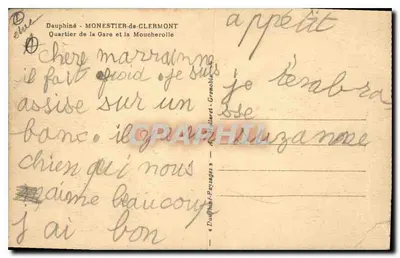 Dauphiné - MONESTIER-de-CLERMONT
Quartier de la Gare et la Moucherolle
chère marrainne
il fait froid je suis
assise sur un
banc. il y a un
chien qui nous
aime beaucoup
j ai bon
appétit
je t'embra
sse
suzanne
"Dauphiné-Paysages"
CPARAMA